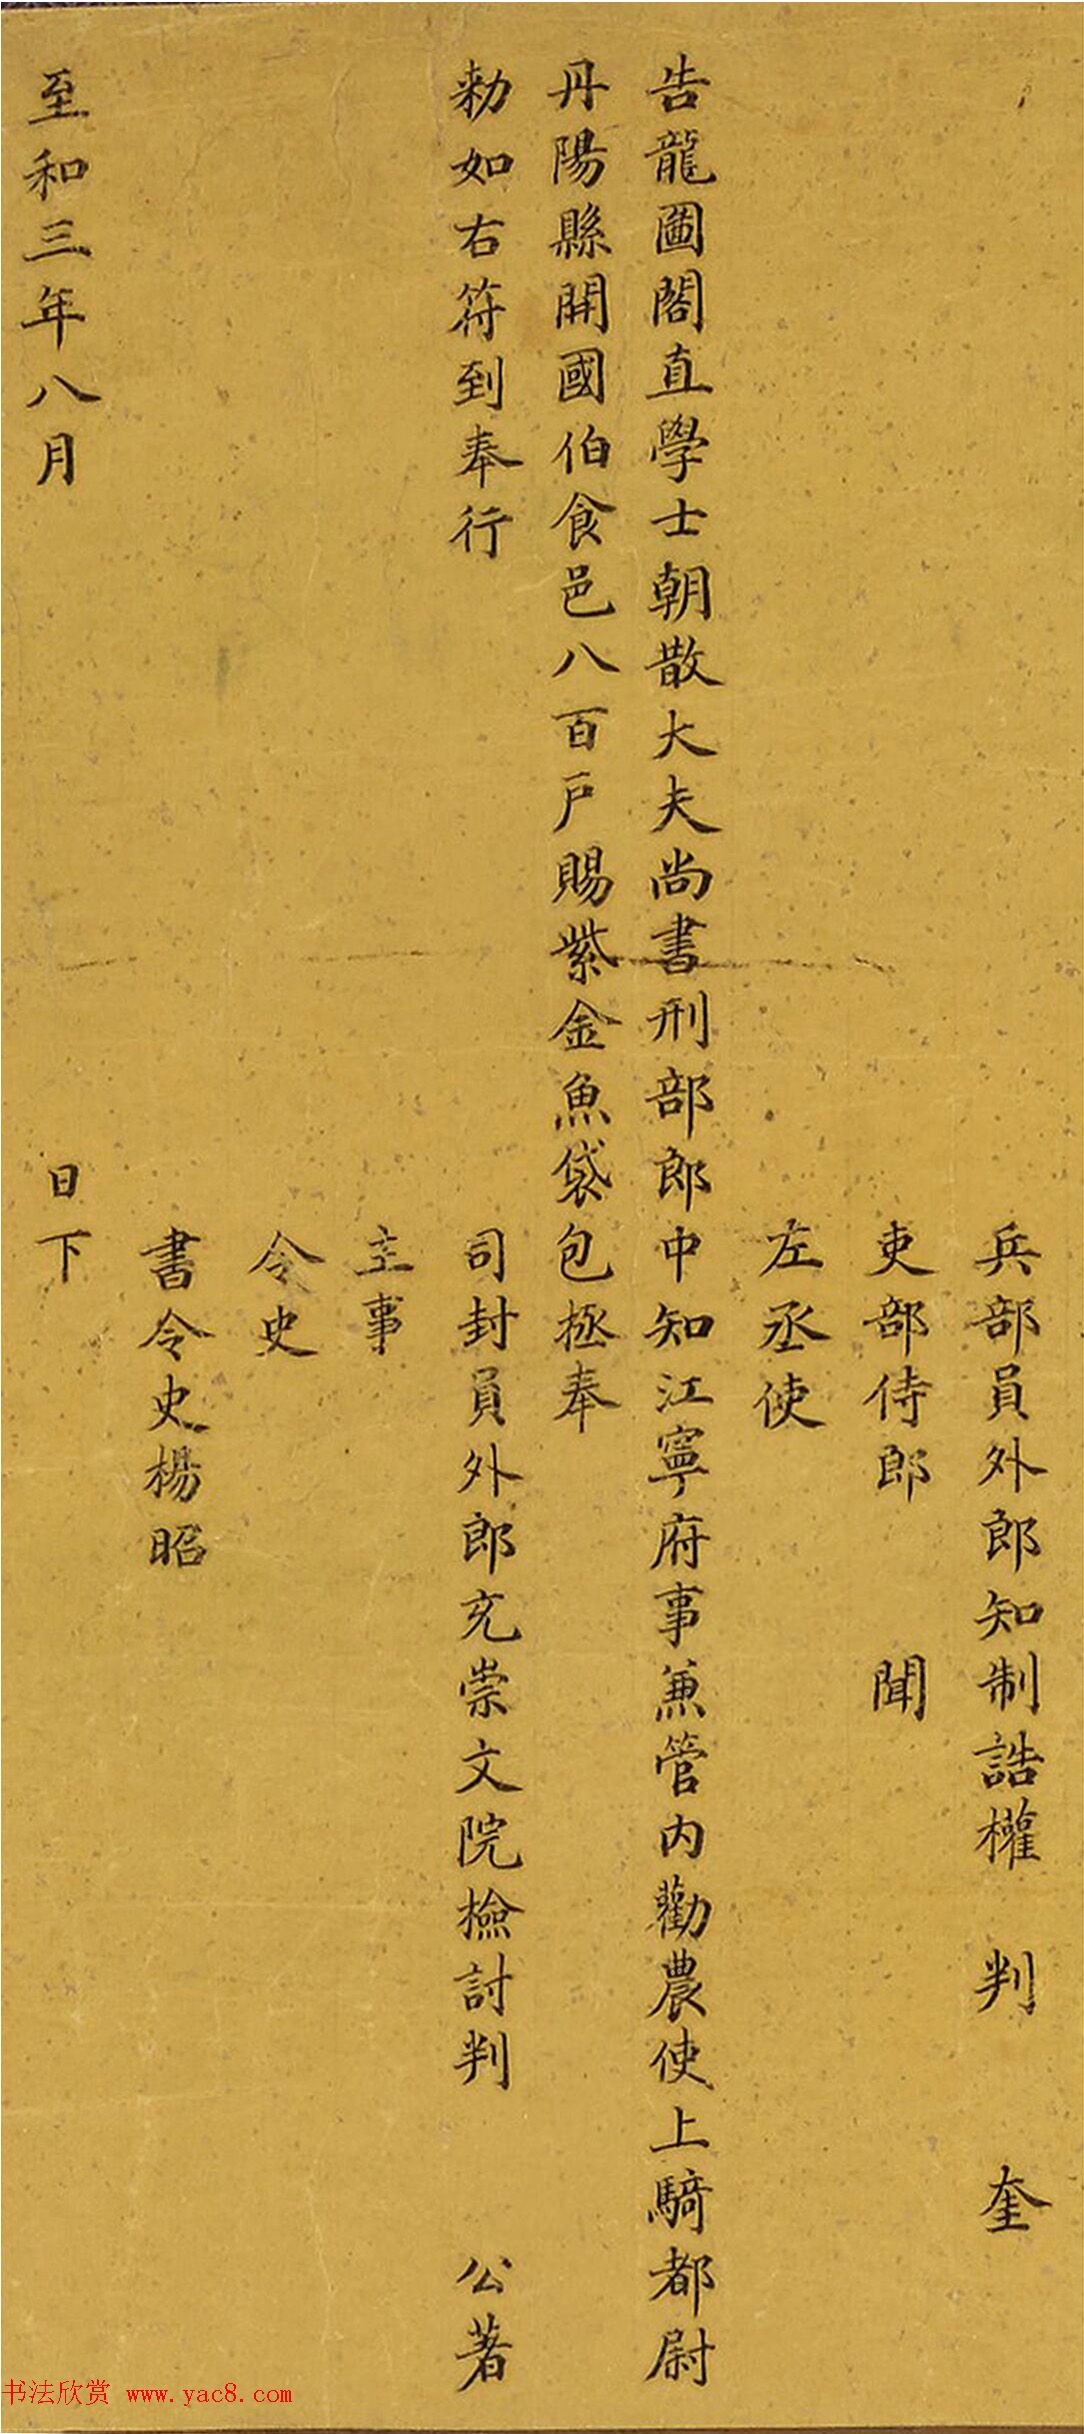 兵部員外郎知制誥權 判 奎
吏部侍郎 聞
左丞使
告龍圖閣直學士朝散大夫尚書刑部郎中知江寧府事兼管内勸農使上騎都尉
丹陽縣開國伯食邑八百戶賜紫金魚袋包拯奉
勑如右符到奉行
司封員外郎充崇文院檢討判 公著
主事
令史
書令史楊昭
至和三年八月 日下
书法欣赏 www.yac8.com